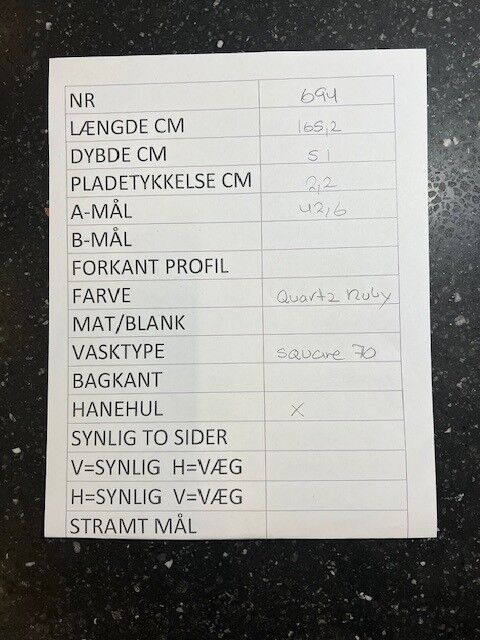 NR 694
LÆNGDE CM 165,2
DYBDE CM 51
PLADETYKKELSE CM 2,2
A-MÅL 42,6
B-MÅL
FORKANT PROFIL
FARVE Quartz Ruby
MAT/BLANK
VASKTYPE Square 70
BAGKANT
HANEHUL X
SYNLIG TO SIDER
V=SYNLIG H=VÆG
H=SYNLIG V=VÆG
STRAMT MÅL